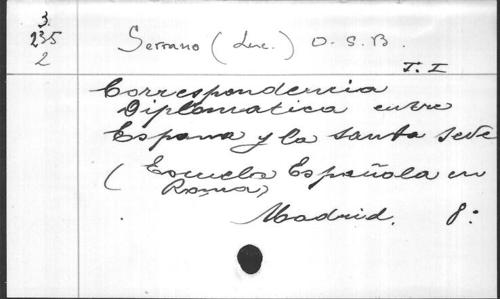 3.
235
2
Serrano (Luc.) O.S.B.
T. I
Correspondencia
Diplomatica entre
España y la Santa Sede
(Escuela Española en
Roma)
Madrid. 8: